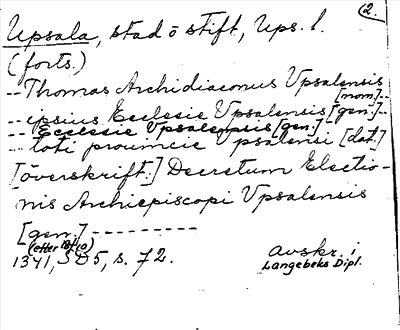 2.
Upsala, stad o stift, Ups. l.
(forts.)
-- Thomas Archidiaconus Upsalensis
[nom.] --
-- ipsius Ecclesie Upsalensis [gen.] --
-- Ecclesie Upsalensis [gen.]
-- toti prouincie Upsalensi [dat.]
[överskrift.] Decretum Electio-
nis Archiepiscopi Vpsalensis
[gen.] ---------
(efter 18/10)
1341, SD5, s. 72. avskr. i
Langebeks Dipl.